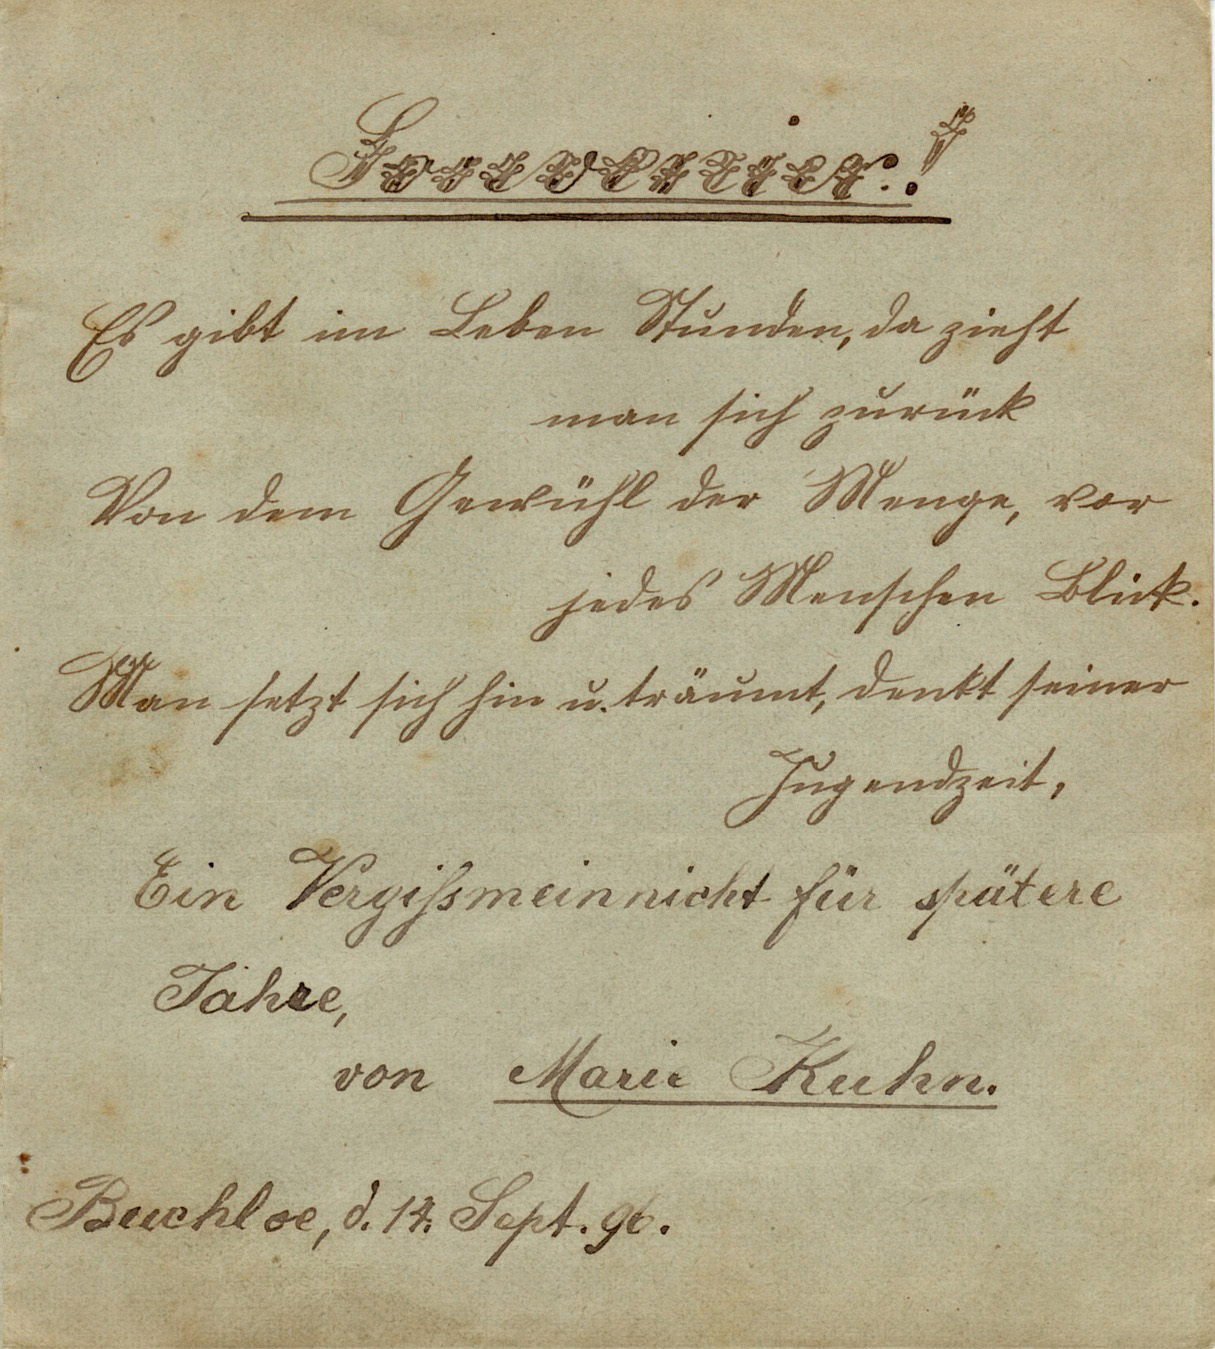 Souvenier.!
Es gibt im Leben Stunden, da zieht
man sich zurück
Von dem Gewühl der Menge, vor
jedes Menschen Blick.
Man setzt sich hin u. träumt, denkt seiner
Jugendzeit,
Ein Vergißmeinnicht für spätere
Jahre,
von Marie Kuhn.
Buchloe, d. 14. Sept. 96.